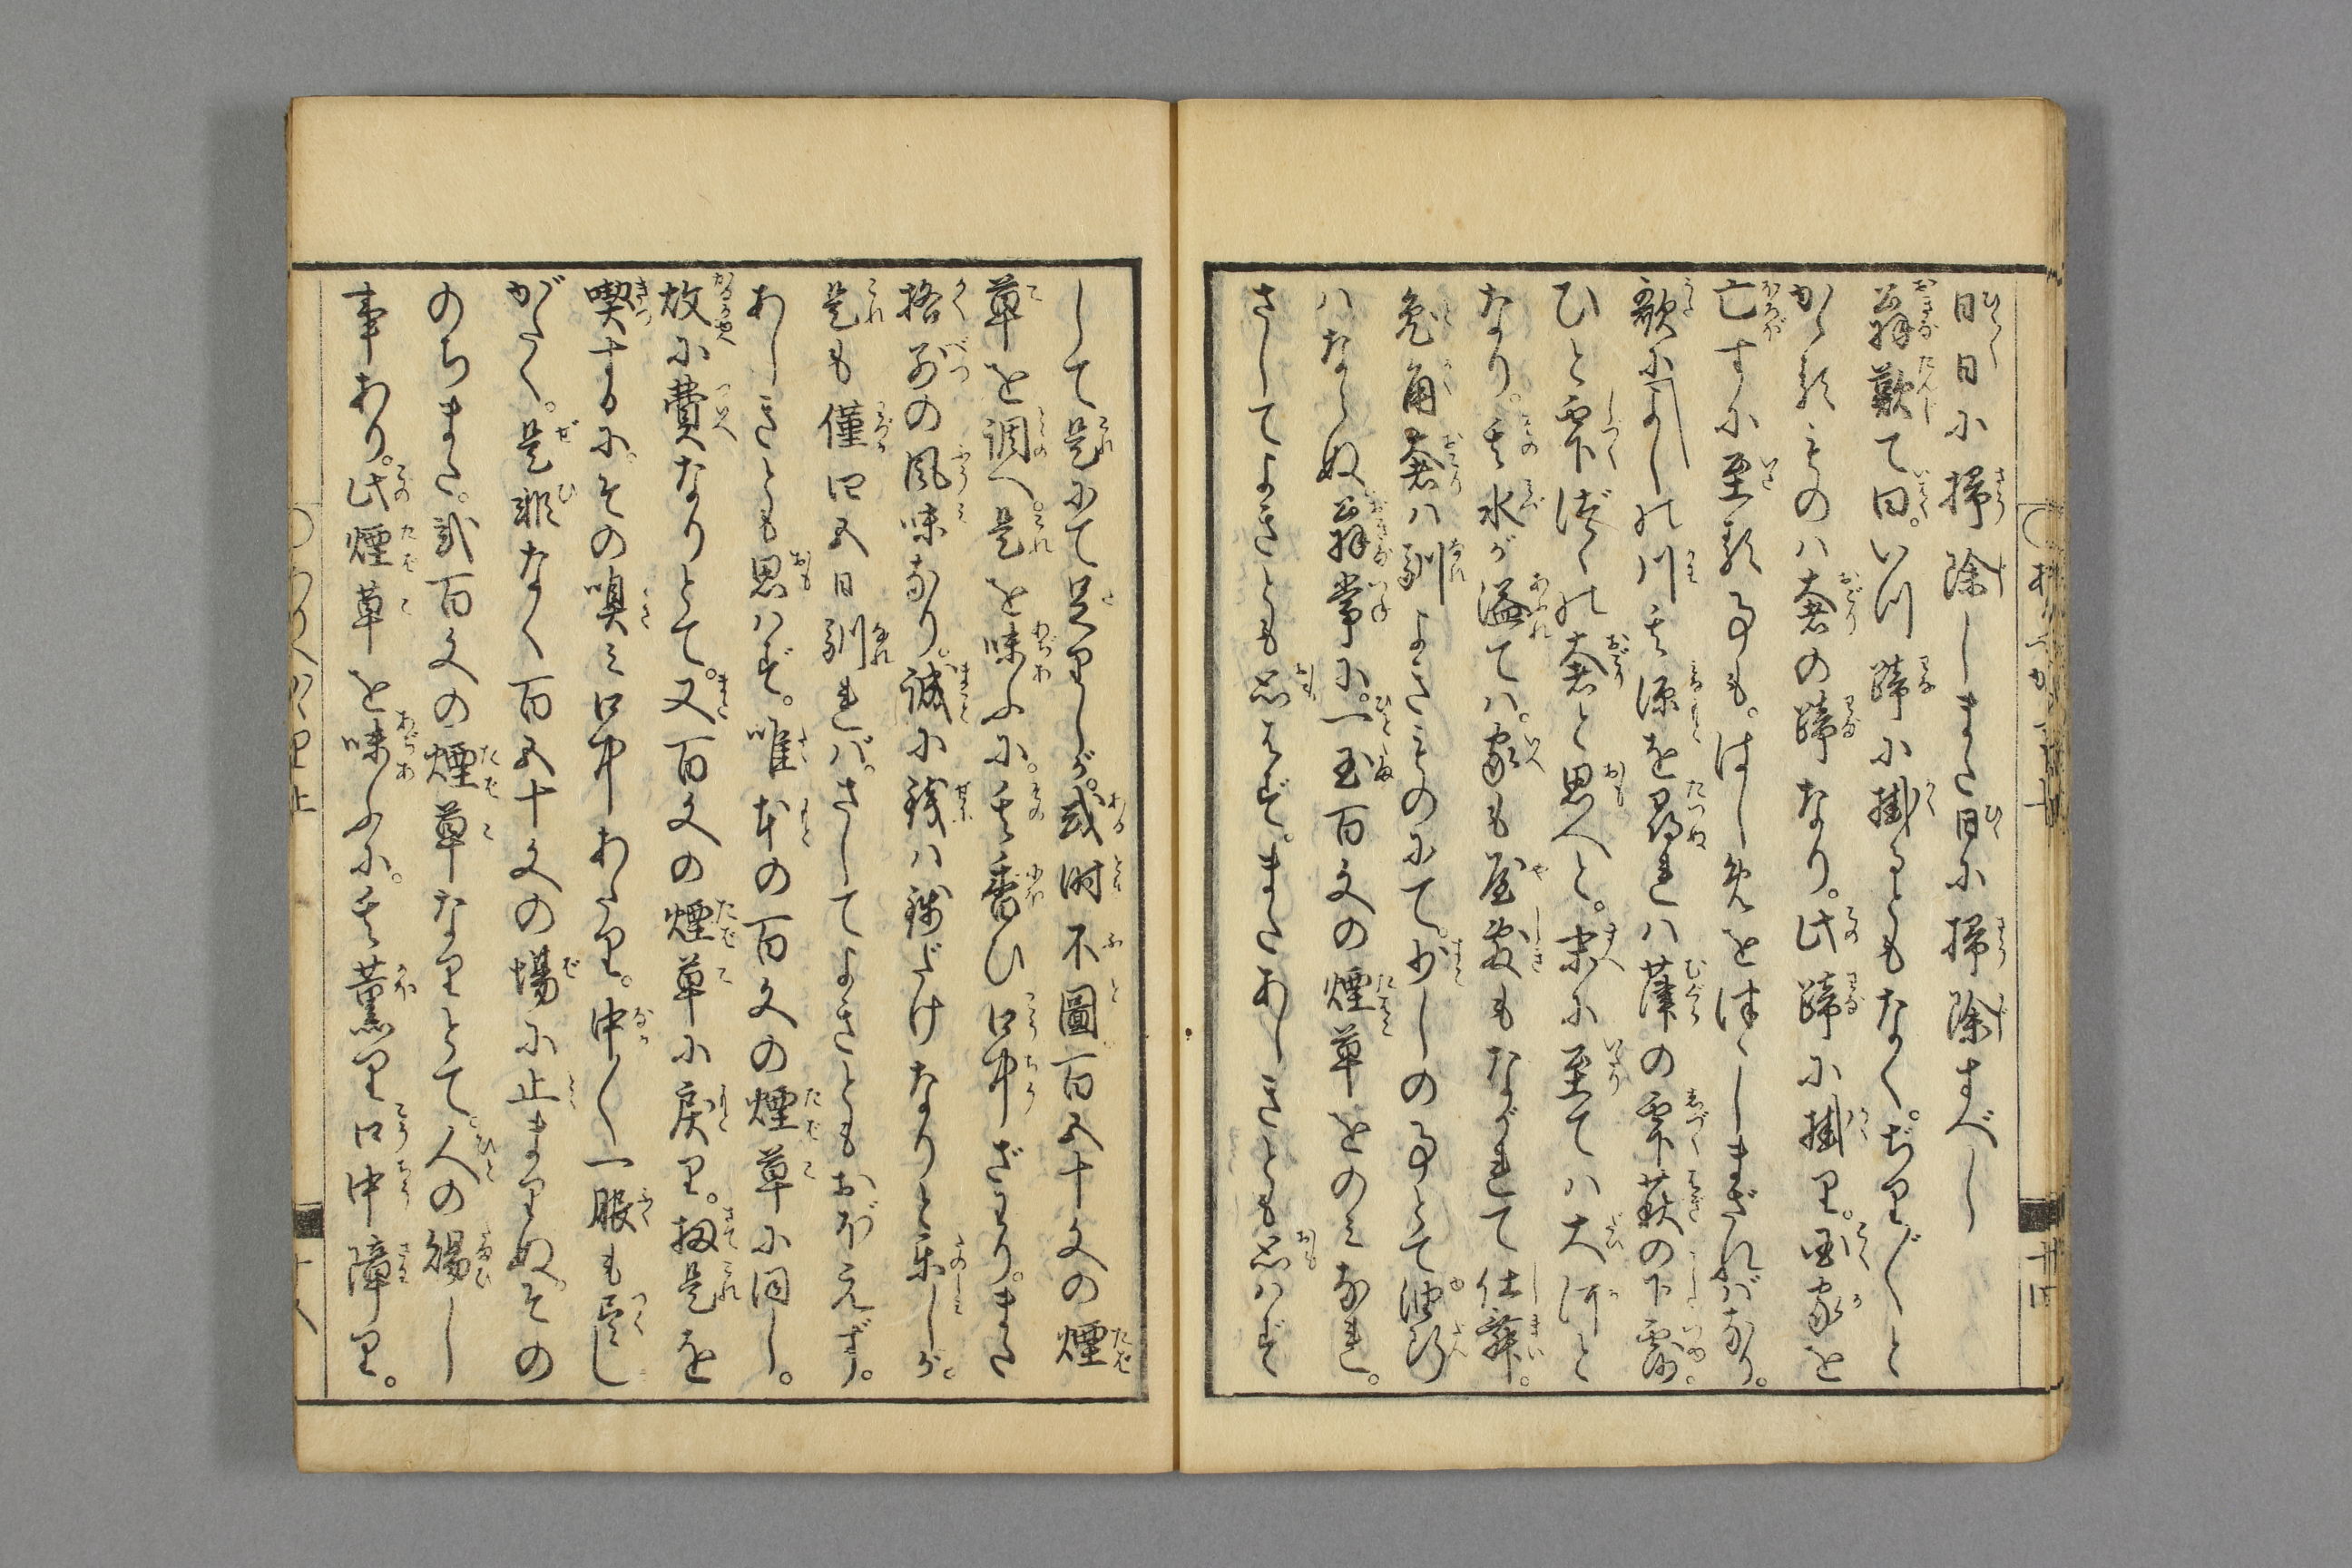 日日に掃除しまた日に掃除すべし
翁歎て曰。いつ蹄に掛るともなく。ぢり〴〵と
かゝるものハ奢の蹄なり。此蹄に掛り。国家を
亡すに至る事も。はし免を津ゝしまざれバなり。
歌によし
の川其源を尋れハ葎の雫萩の下露。
ひと雫づゝの奢と思へと。末に至てハ大河と
なり。其水が溢てハ。家も屋敷もながれて仕舞。
兎角奢ハ馴よきものにて。少しの事とて油断
ハならぬ翁常に。一玉百文の煙草をのみなれ。
さしてよきとも思はず。またあしきとも思ハず
して是にて足りしが。或時不圖百五十文の煙
草を調へ。是を味ふに。其香ひ口中ざはり。また
格別の風味なり。誠に銭ハ銭だけなりと楽しが。
是も僅四五日馴れバ。さしてよきともおぼえず。
あしきとも思ハず。唯本の百文の煙草に同し。
故に費なりとて。又百文の煙草に戻り。扨是を
喫するに。その嗅ミ口中あたり。中〳〵一服も尽し
がたく。是非なく百五十文の場に止まりぬ。その
のちまた。弐百文の煙草なりとて。人の賜し
事あり。此煙草を味ふに。其薫り口中障り。